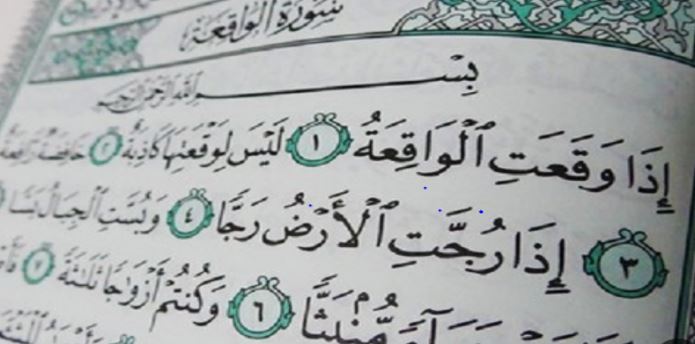 سُورَةُ الْوَاقِعَةِ
بِسْمِ اللَّهِ الرَّحْمَٰنِ الرَّحِيمِ
إِذَا وَقَعَتِ ٱلْوَاقِعَةُ ١ لَيْسَ لِوَقْعَتِهَا كَاذِبَةٌ ٢ خَافِضَةٌ رَّافِعَةٌ
٣ إِذَا رُجَّتِ ٱلْأَرْضُ رَجًّا ٤ وَبُسَّتِ ٱلْجِبَالُ بَسًّا
مُّنۢبَثًّا ٦ وَكُنتُمْ أَزْوَٰجًا ثَلَٰثَةً ٧